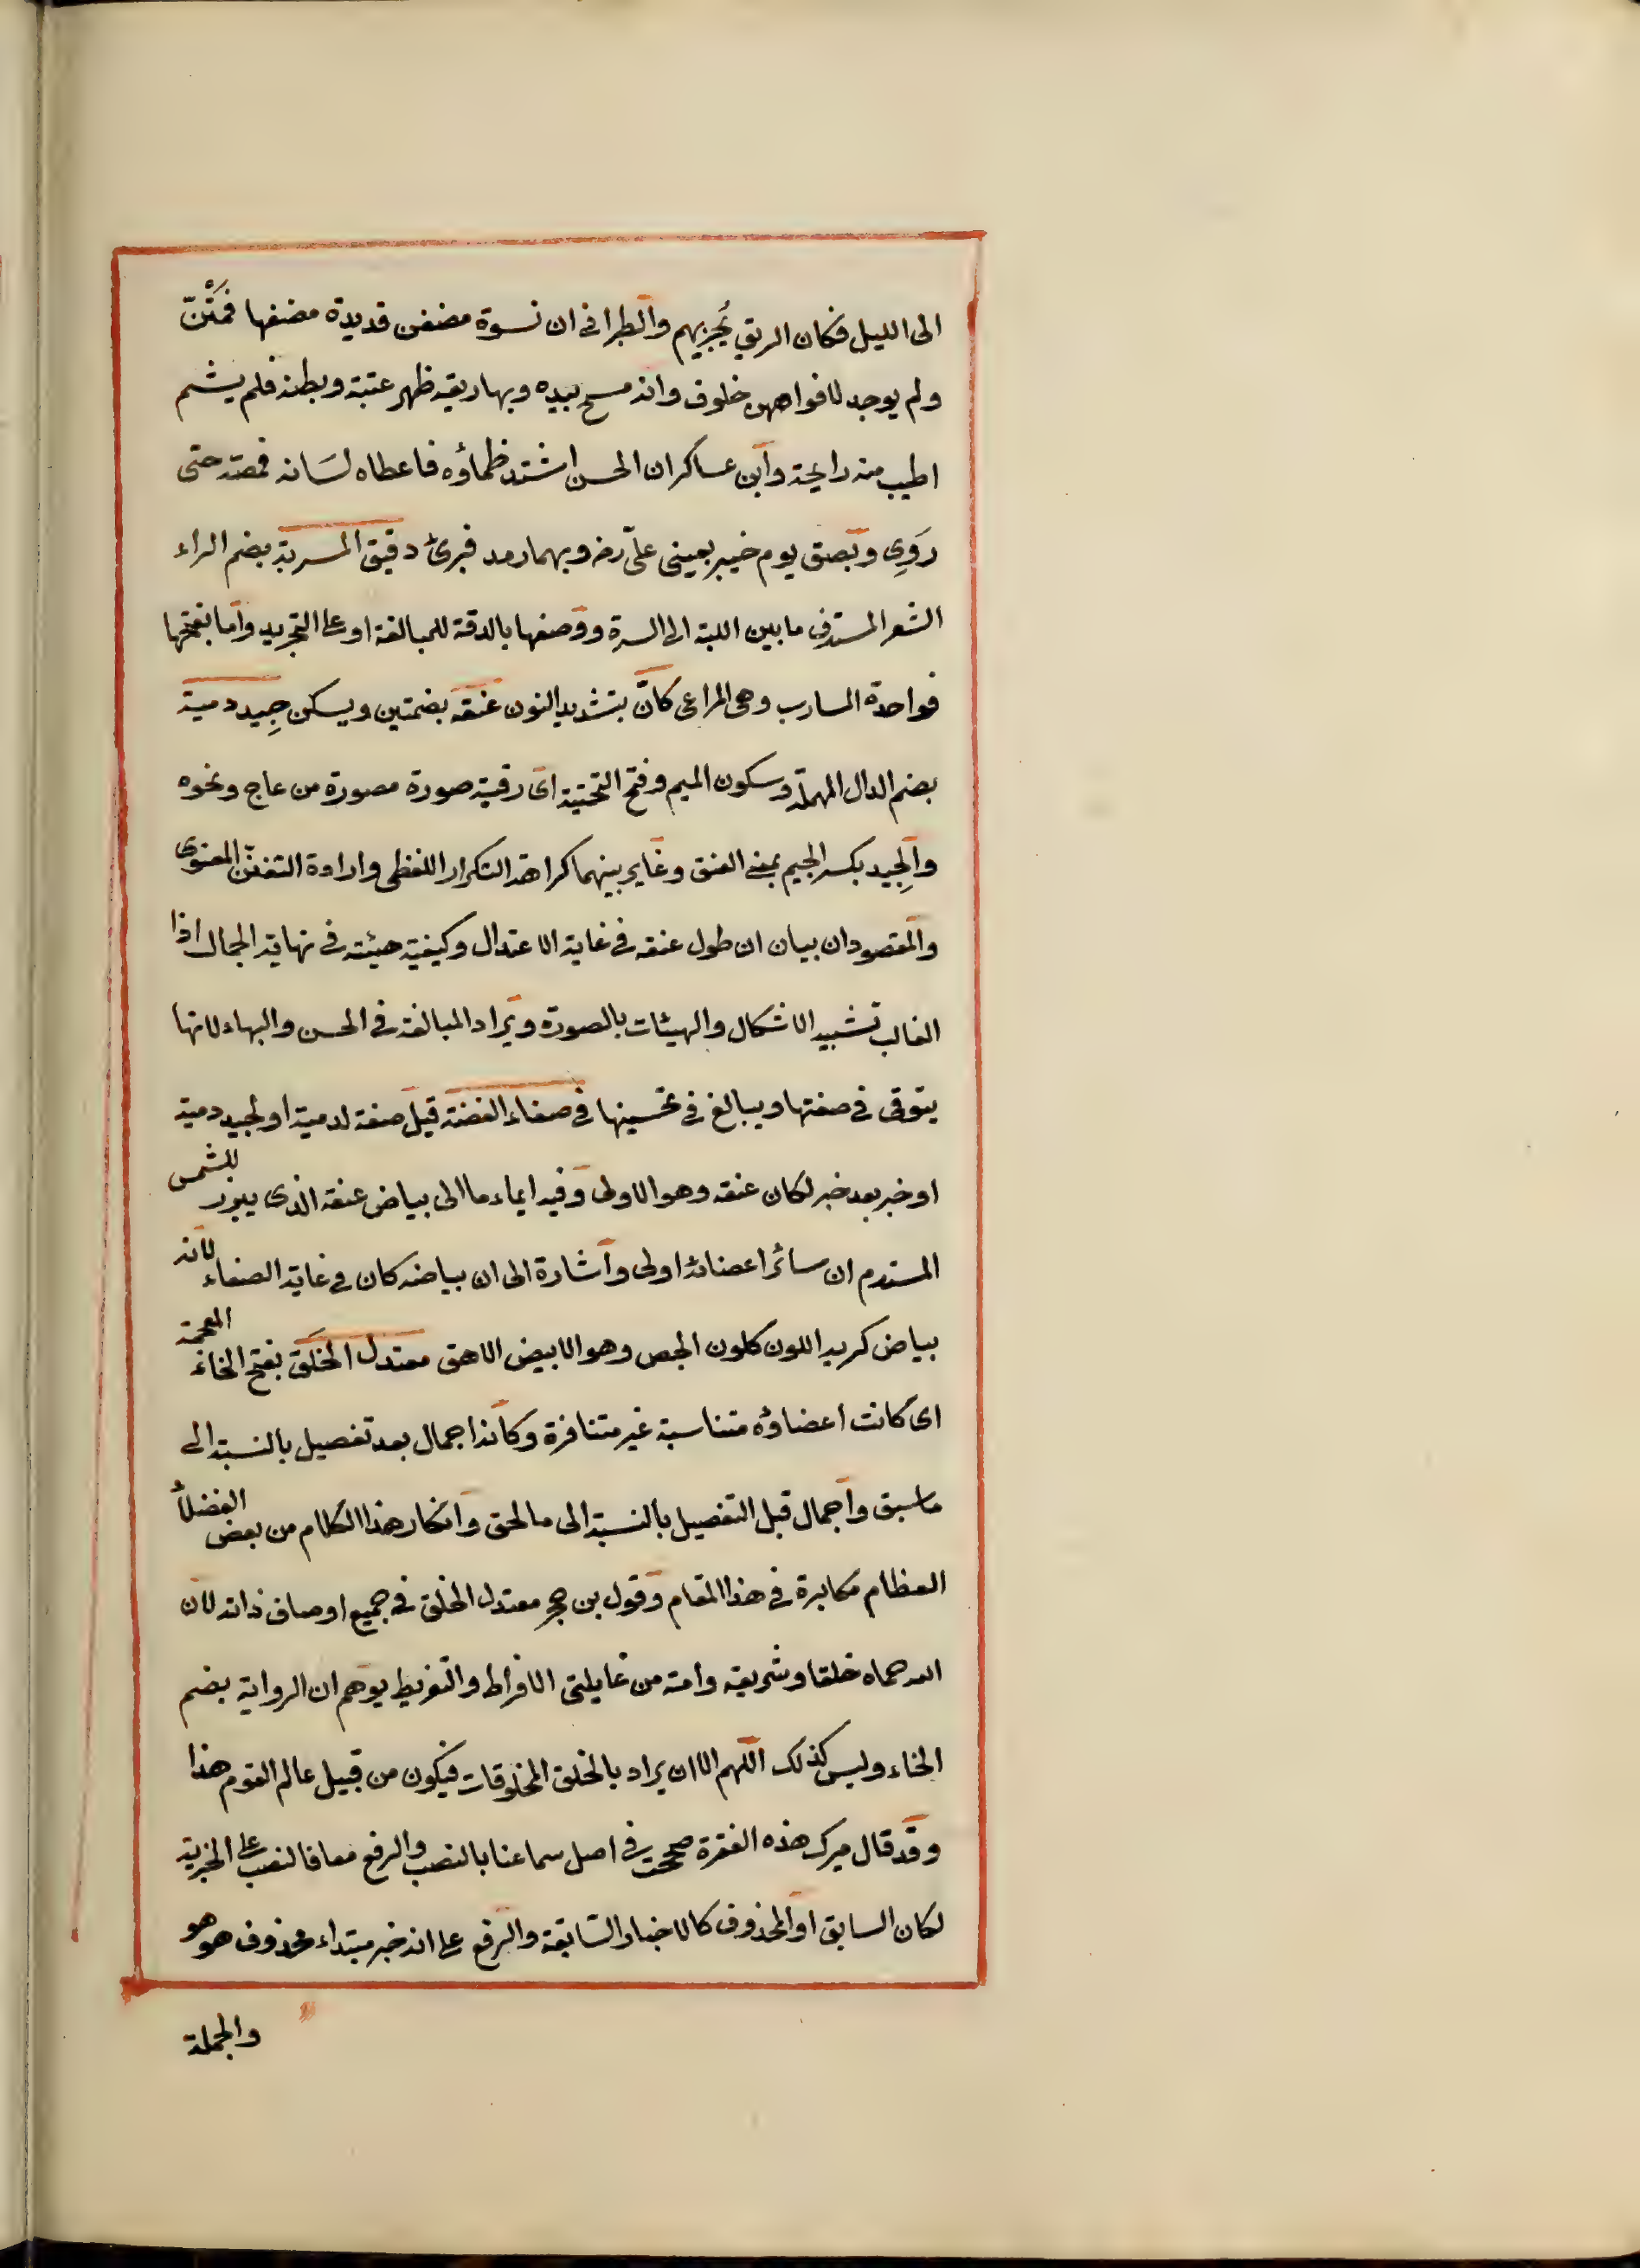 الى الليل فكان الريق يُجزيهم والطبرانى ان نسوة مضغن قديدة مضغها فمُتْنَ
ولم يوجد لافواههن خلوف وانه مسح بيده وبها ريقه ظهر عتبة وبطنه فلم يشم
اطيب منه رايحة وابن عساكر ان الحسن اشتد ظماؤه فاعطاه لسانه فمصه حتى
رَوِى وبصق يوم خيبر بعينى علىّ رض وبهما رمد فبرئ دقيق المسربة بضم الراء
الشعر المستدق ما بين اللبة الى السرة ووصفها بالدقة للمبالغة او على التجريد واما بفتحها
فواحدة المسارب وهى المراعى كانّ بتشديد النون عنقه بضمتين ويسكن جِيد دمية
بضم الدال المهملة وسكون الميم وفتح التحتية اى رقبة صورة مصورة من عاج ونحوه
والجِيد بكسر الجيم بمعنى العنق وغاير بينهما كراهة التكرار اللفظى وارادة التفنّن المعنوى
والمقصود ان بيان ان طول عنقه فى غاية الاعتدال وكيفية هيئته فى نهاية الجمال اذا
الغالب تشبيه الاشكال والهيئات بالصورة ويراد المبالغة فى الحسن والبهاء لانها
يتوقى فى صفتها ويبالغ فى تحسينها فى صفاء الفضة قيل صفة لدمية او لجيد دمية
او خبر بعد خبر لكان عنقه وهو الاولى وفيه ايماء ما الى بياض عنقه الذى يبرز للشمس
المستدم ان سائر اعضائه اولى واشارة الى ان بياضه كان فى غاية الصفاء لانه
بياض كريه اللون كلون الجص وهو الابيض الامهق معتدل الخَلق بفتح الخاء المعجمة
اى كانت اعضاؤه متناسبة غير متنافرة وكانه اجمال بعد تفصيل بالنسبة الى
ما سبق واجمال قبل التفصيل بالنسبة الى ما لحق وانكار هذا الكلام من بعض الفضلاء
العظام مكابرة فى هذا المقام وقول بن حجر معتدل الخلق فى جميع اوصاف ذاته لان
الله حماه خلقا وشريعة وامة من غايلتى الافراط والتفريط يوهم ان الرواية بضم
الخاء وليس كذلك اللهم الا ان يراد بالخلق المخلوقات فيكون من قبيل عالم القوم هذا
وقد قال ميرك هذه الفقرة صححت فى اصل سماعنا بالنصب والرفع معا فالنصب على الخبرية
لكان السابق او المحذوف كالاخبار السابقة والرفع على انه خبر مبتداء محذوف هو هو
والجملة